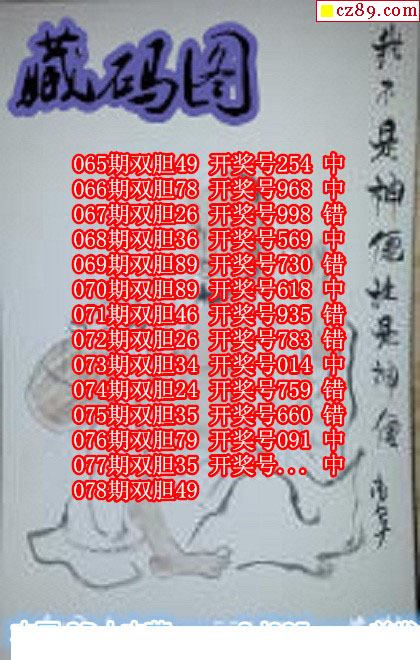 cz89.com
藏码图
065期双胆49 开奖号254 中
066期双胆78 开奖号968 中
067期双胆26 开奖号998 错
068期双胆36 开奖号569 中
069期双胆89 开奖号730 错
070期双胆89 开奖号618 中
071期双胆46 开奖号935 错
072期双胆26 开奖号783 错
073期双胆34 开奖号014 中
074期双胆24 开奖号759 错
075期双胆35 开奖号660 错
076期双胆79 开奖号091 中
077期双胆35 开奖号... 中
078期双胆49
我不是神
是神